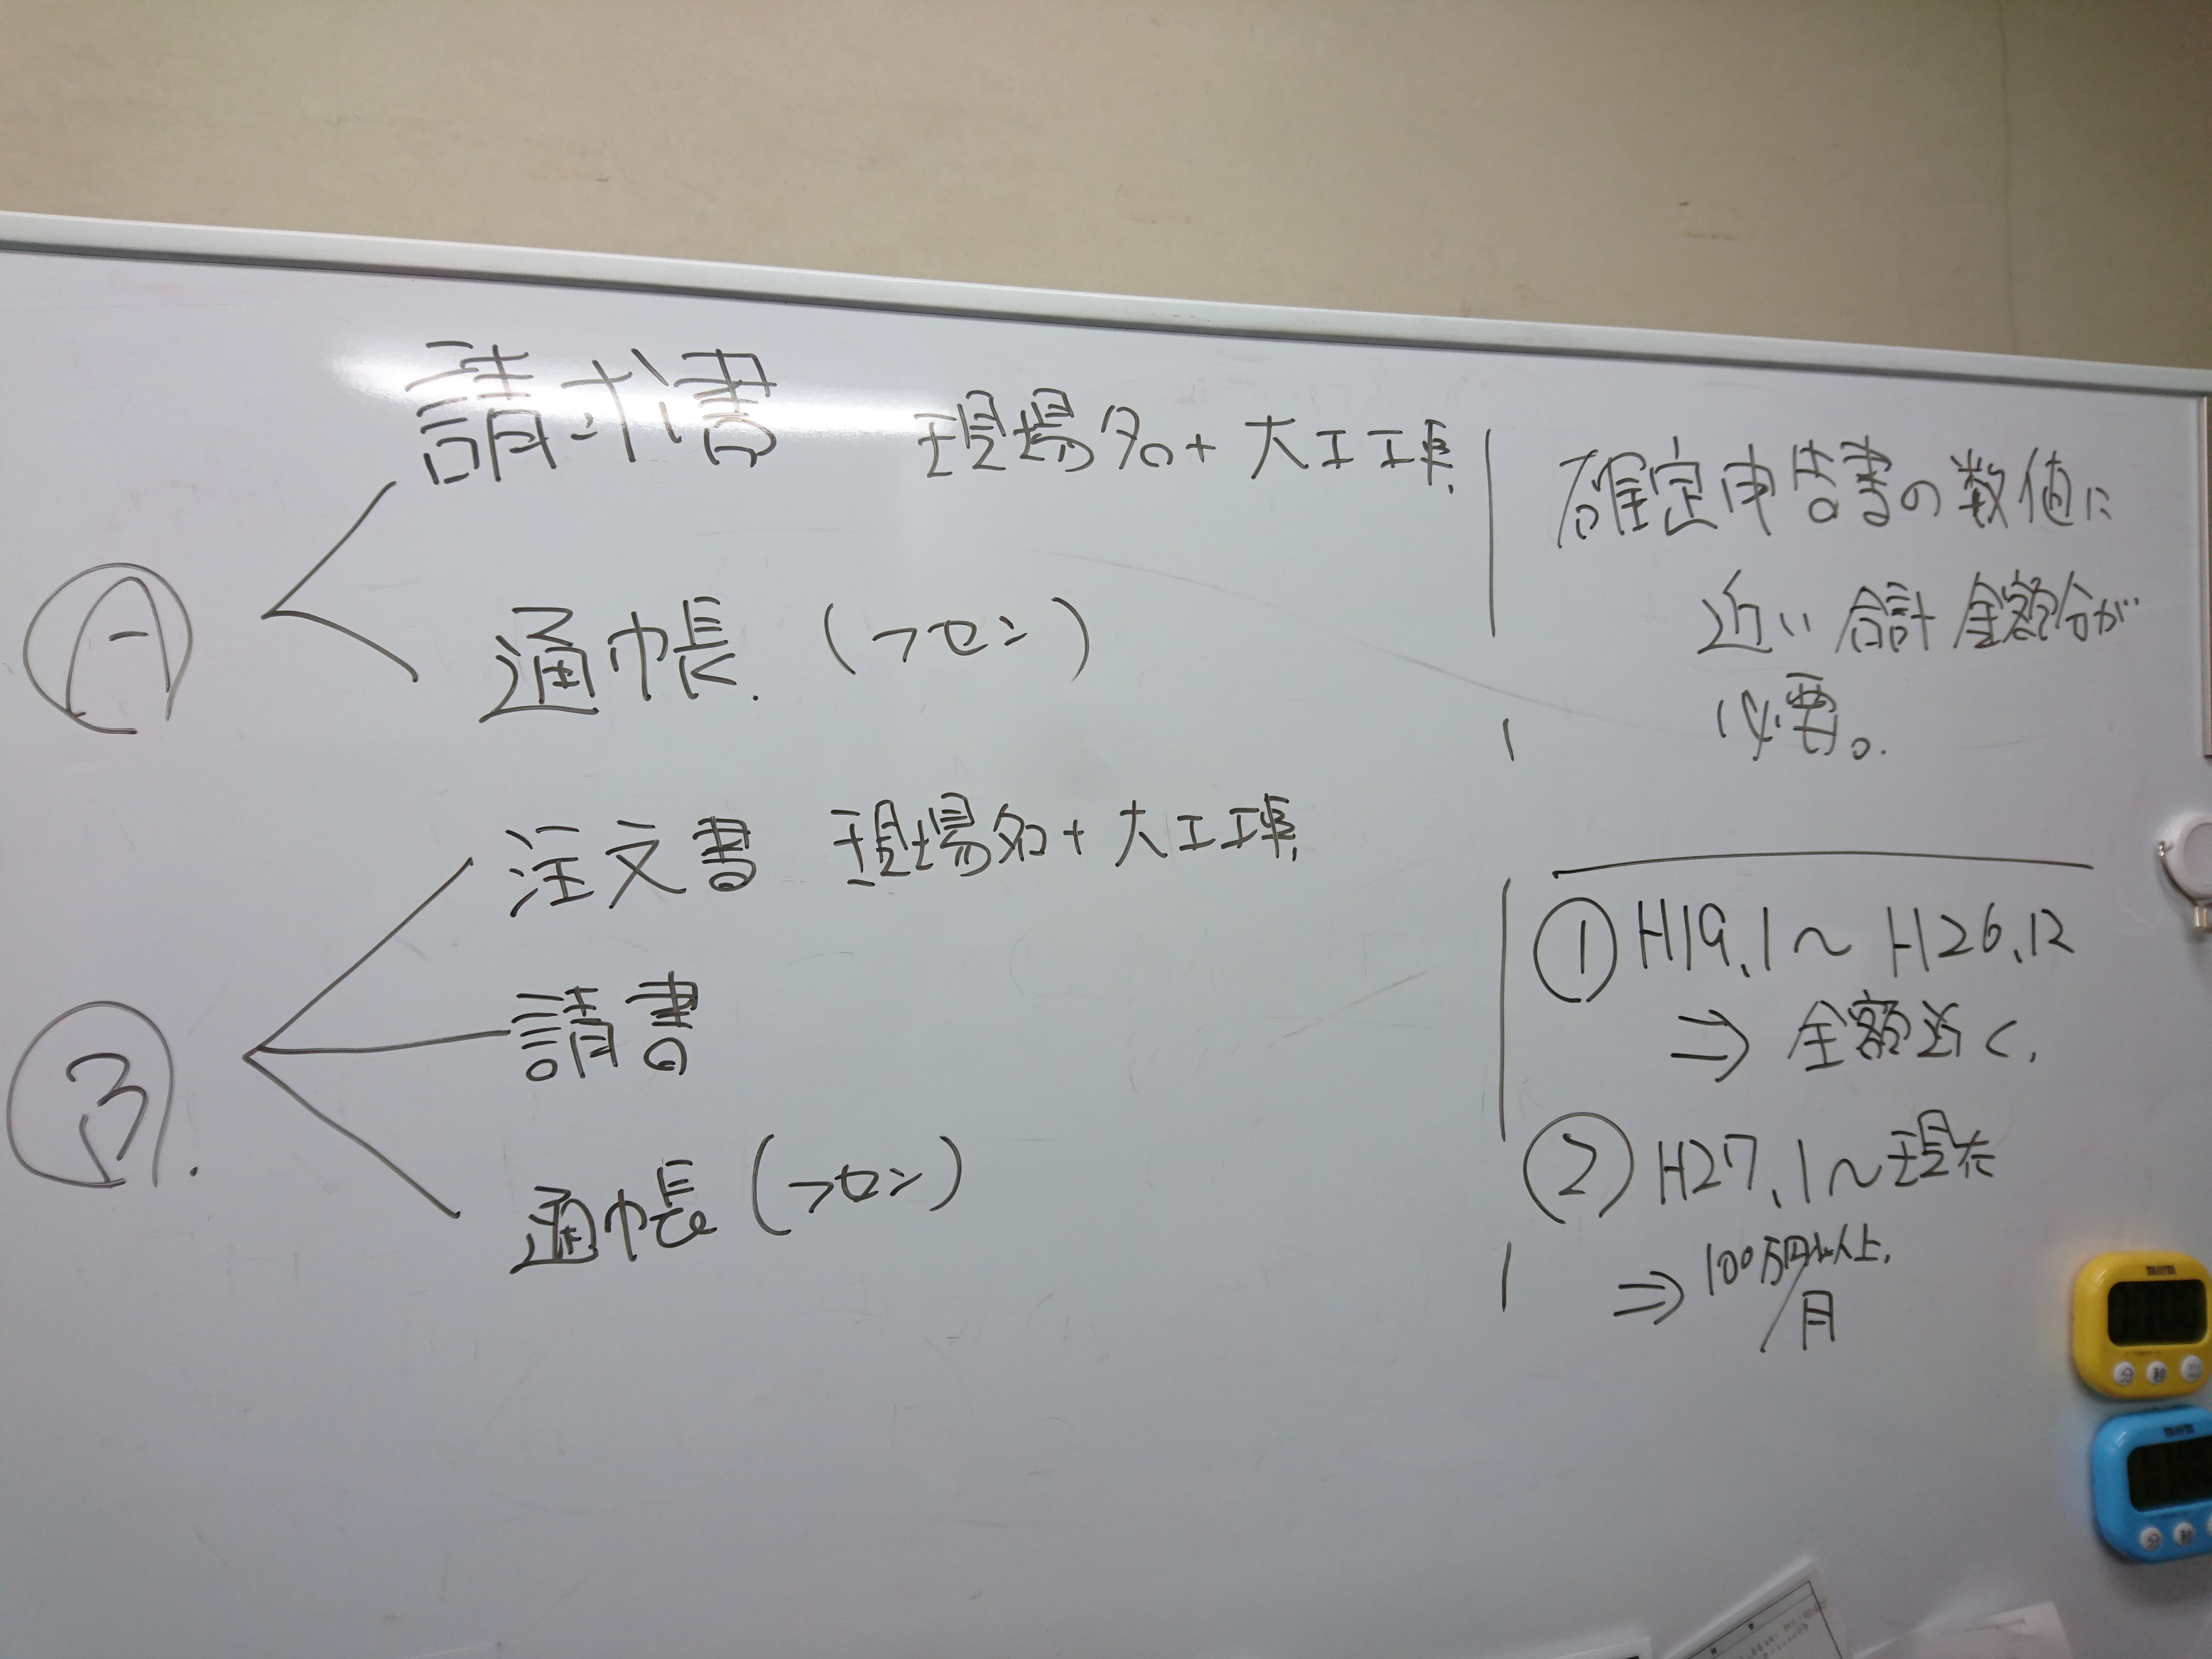 請求書 現場名+大工工事.
A
通帳.(フセン)
注文書 現場名+大工工事.
B.
請書
通帳(フセン)
確定申告書の数値に
近い合計金額分が
必要。
① H19.1～H26.12
⇒ 金額近く.
② H27.1～現在
⇒ 100万円以上.
/月
分 秒
分 秒